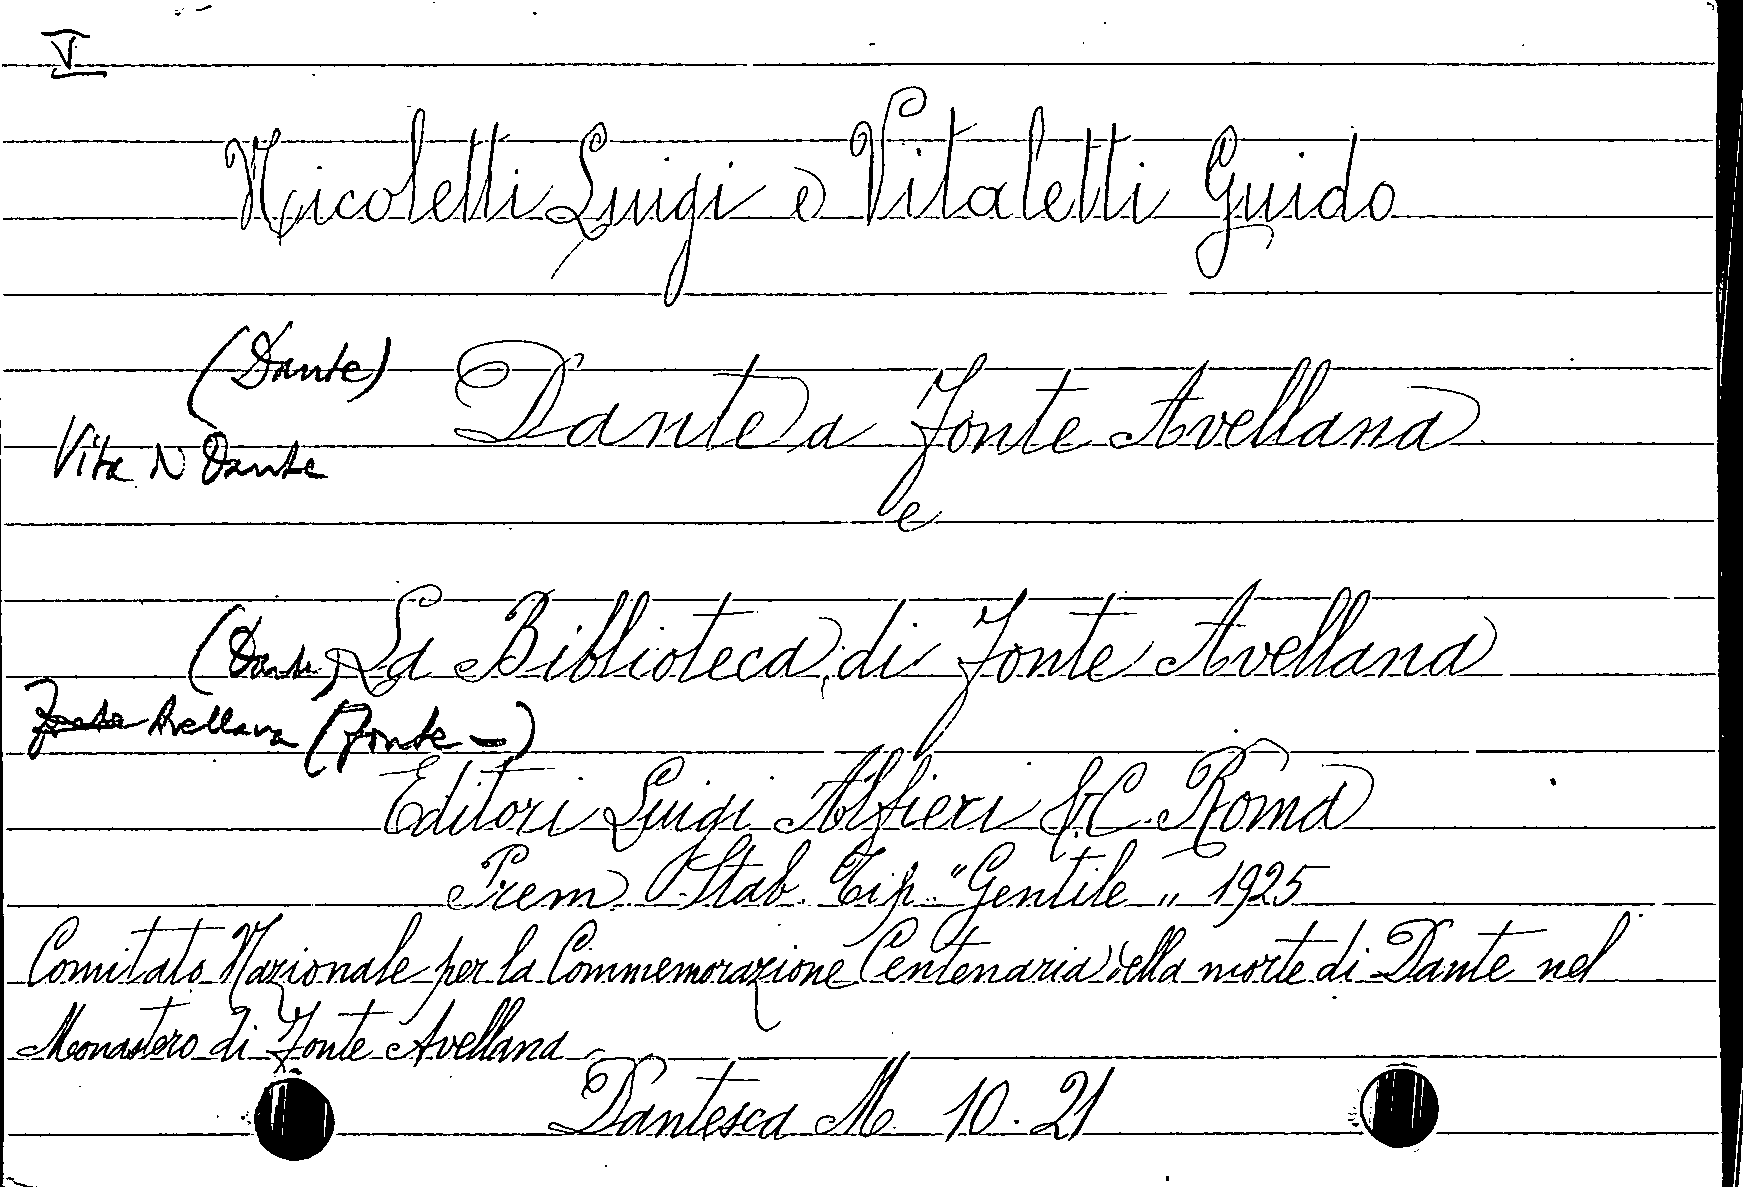 V
Nicoletti Luigi e Vitaletti Guido
(Dante) Dante a Fonte Avellana
Vita Dante
e
(Dante) La Biblioteca di Fonte Avellana
Fonte Avellana (Fonte -)
Editori Luigi Alfieri & C. Roma
Prem. Stab. Tip. "Gentile" 1925
Comitato Nazionale per la Commemorazione Centenaria della morte di Dante nel
Monastero di Fonte Avellana
Dantesca M 10.21